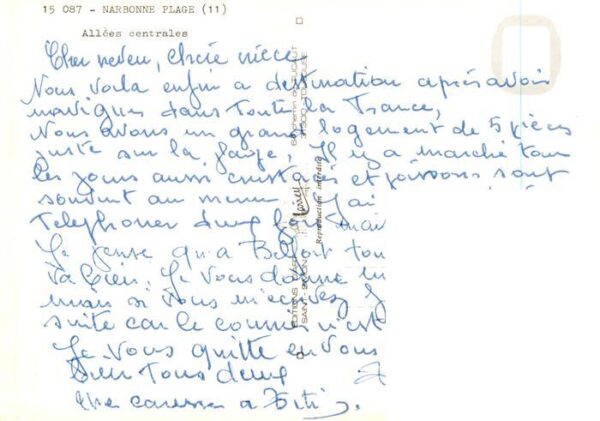 15 087 - NARBONNE PLAGE (11)
Allées centrales
Cher neveu, chère nièce
Nous voila enfin a destination après avoir
navigues dans toute la France,
Nous avons un grand logement de 5 pièces
juste sur la plage, Il y a marché tous
les jours aussi crustacés et poissons sont
souvent au menu J'ai
telephoner deux fois mais
Je pense qu'a Belfort tou
va bien. Je vous donne
main si vous m'ecrivez
suite car le courrier n'est
Je vous quitte en vous
bien tous deux
une caresse a
EDITIONS D'ART
Reproduction interdite